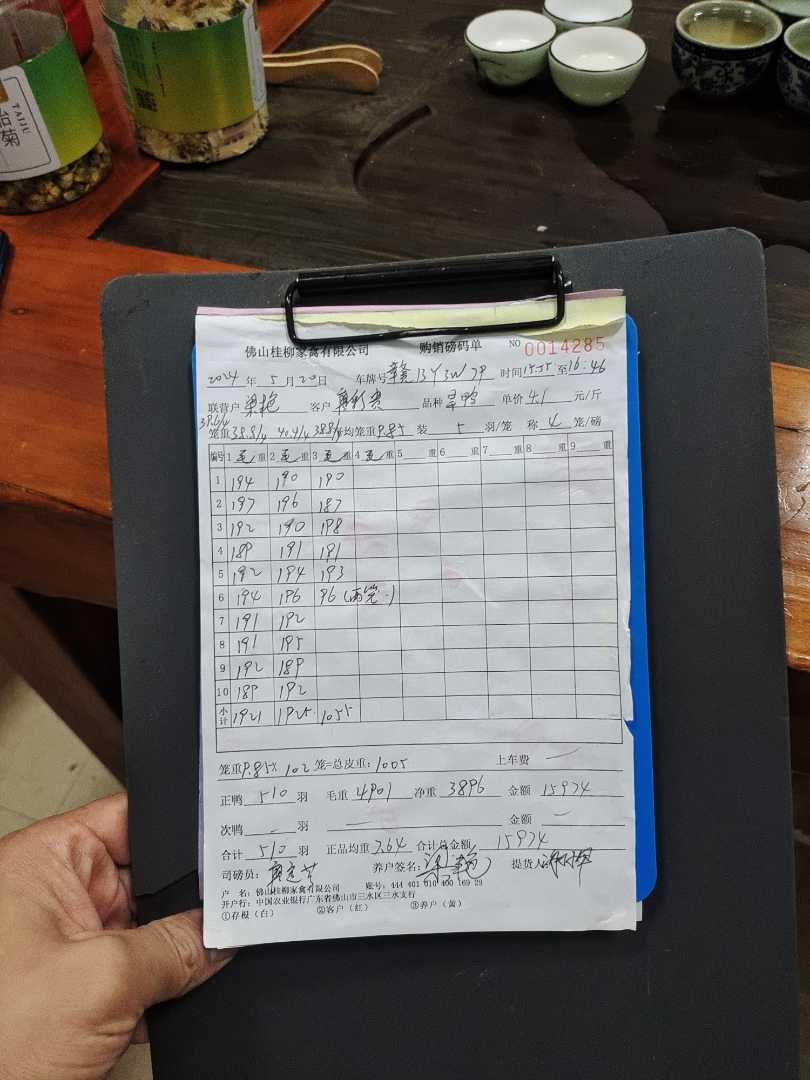 TAIJU
菊
佛山桂柳家禽有限公司 购销磅码单 NO 0014285
2024 年 5 月 20 日 车牌号 赣 时间 15:55 至 16:46
联营户 梁艳 客户 品种 旱鸭 单价 4.1 元/斤
笼重 38.8/4 40.4/4 38.8/4 均笼重 9.85 装 5 羽/笼 称 4 笼/磅
编号 1 毛 重 2 毛 重 3 毛 重 4 毛 重 5 重 6 重 7 重 8 重 9 重
1 194 190 190
2 197 196 187
3 192 190 198
4 189 191 191
5 192 194 193
6 194 196 96 (两笼)
7 191 192
8 191 195
9 192 189
10 189 192
小计 1921 1925 1055
笼重 9.85 × 102 笼=总皮重: 1005 上车费 —
正鸭 510 羽 毛重 4901 净重 3896 金额 15974
次鸭 — 羽 — 金额 —
合计 510 羽 正品均重 7.64 合计总金额 15974
司磅员: 养户签名: 梁艳 提货人:
户 名: 佛山桂柳家禽有限公司 账号: 444 401 010 400 169 29
开户行: 中国农业银行广东省佛山市三水区三水支行
①存根（白） ②客户（红） ③养户（黄）